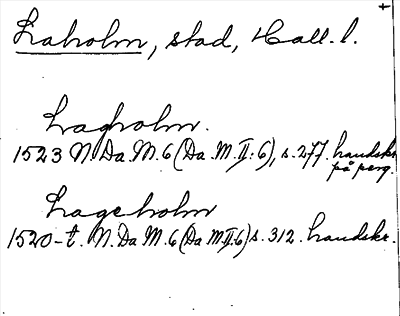 Laholm, stad, Hall. l.
Lagholm.
1523 N. Da M. 6 (Da. M. II: 6), s. 277. handskr.
på perg.
Lageholm
1520-t. N. Da M. 6 (Da M II 6) s. 312. handskr.